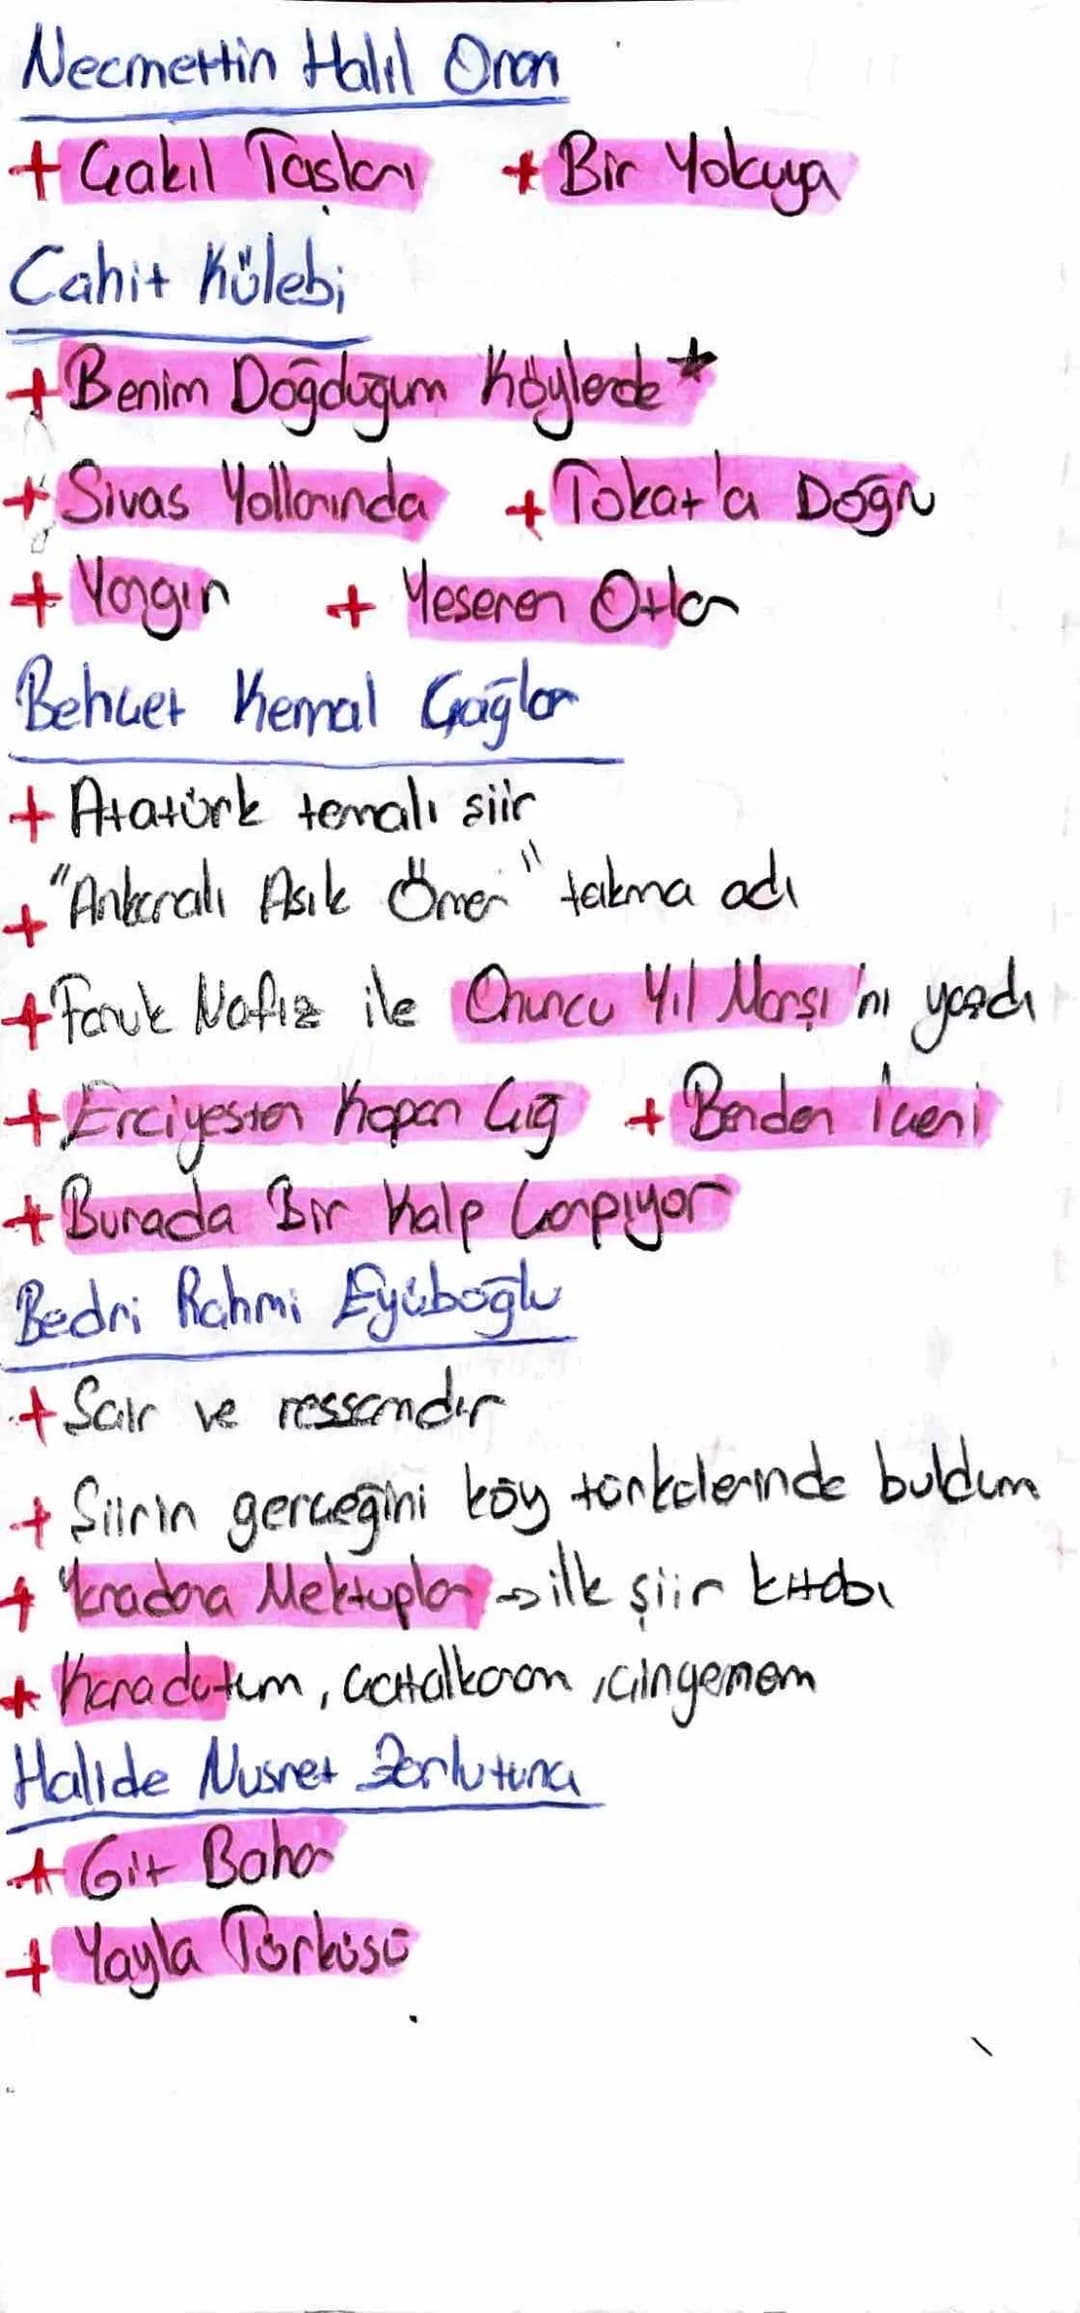 Necmettin Halil Onan
+ Çakıl Taşları + Bir Yokuya
Cahit Külebi
+ Benim Doğduğum Köylerde *
+ Sivas Yollarında + Tokat'a Doğru
+ Yangın + Yeseren Otlar
Behçet Kemal Çağlar
+ Atatürk temalı siir
+ "Ankaralı Asık Ömer" takma adı
+ Faruk Nafiz ile Onuncu Yıl Marşı'nı yazdı
+ Erciyesten Kopan Çığ + Benden İçeri
+ Burada Bir Kalp Çarpıyor
Bedri Rahmi Eyüboğlu
+ Sair ve ressamdır
+ Siirin gerçeğini köy türkülerinde buldum
+ Yaradana Mektuplar → ilk şiir kitabı
+ Karadutum, çatalkaram, çingenem
Halide Nusret Zorlutuna
+ Git Bahar
+ Yayla Türküsü